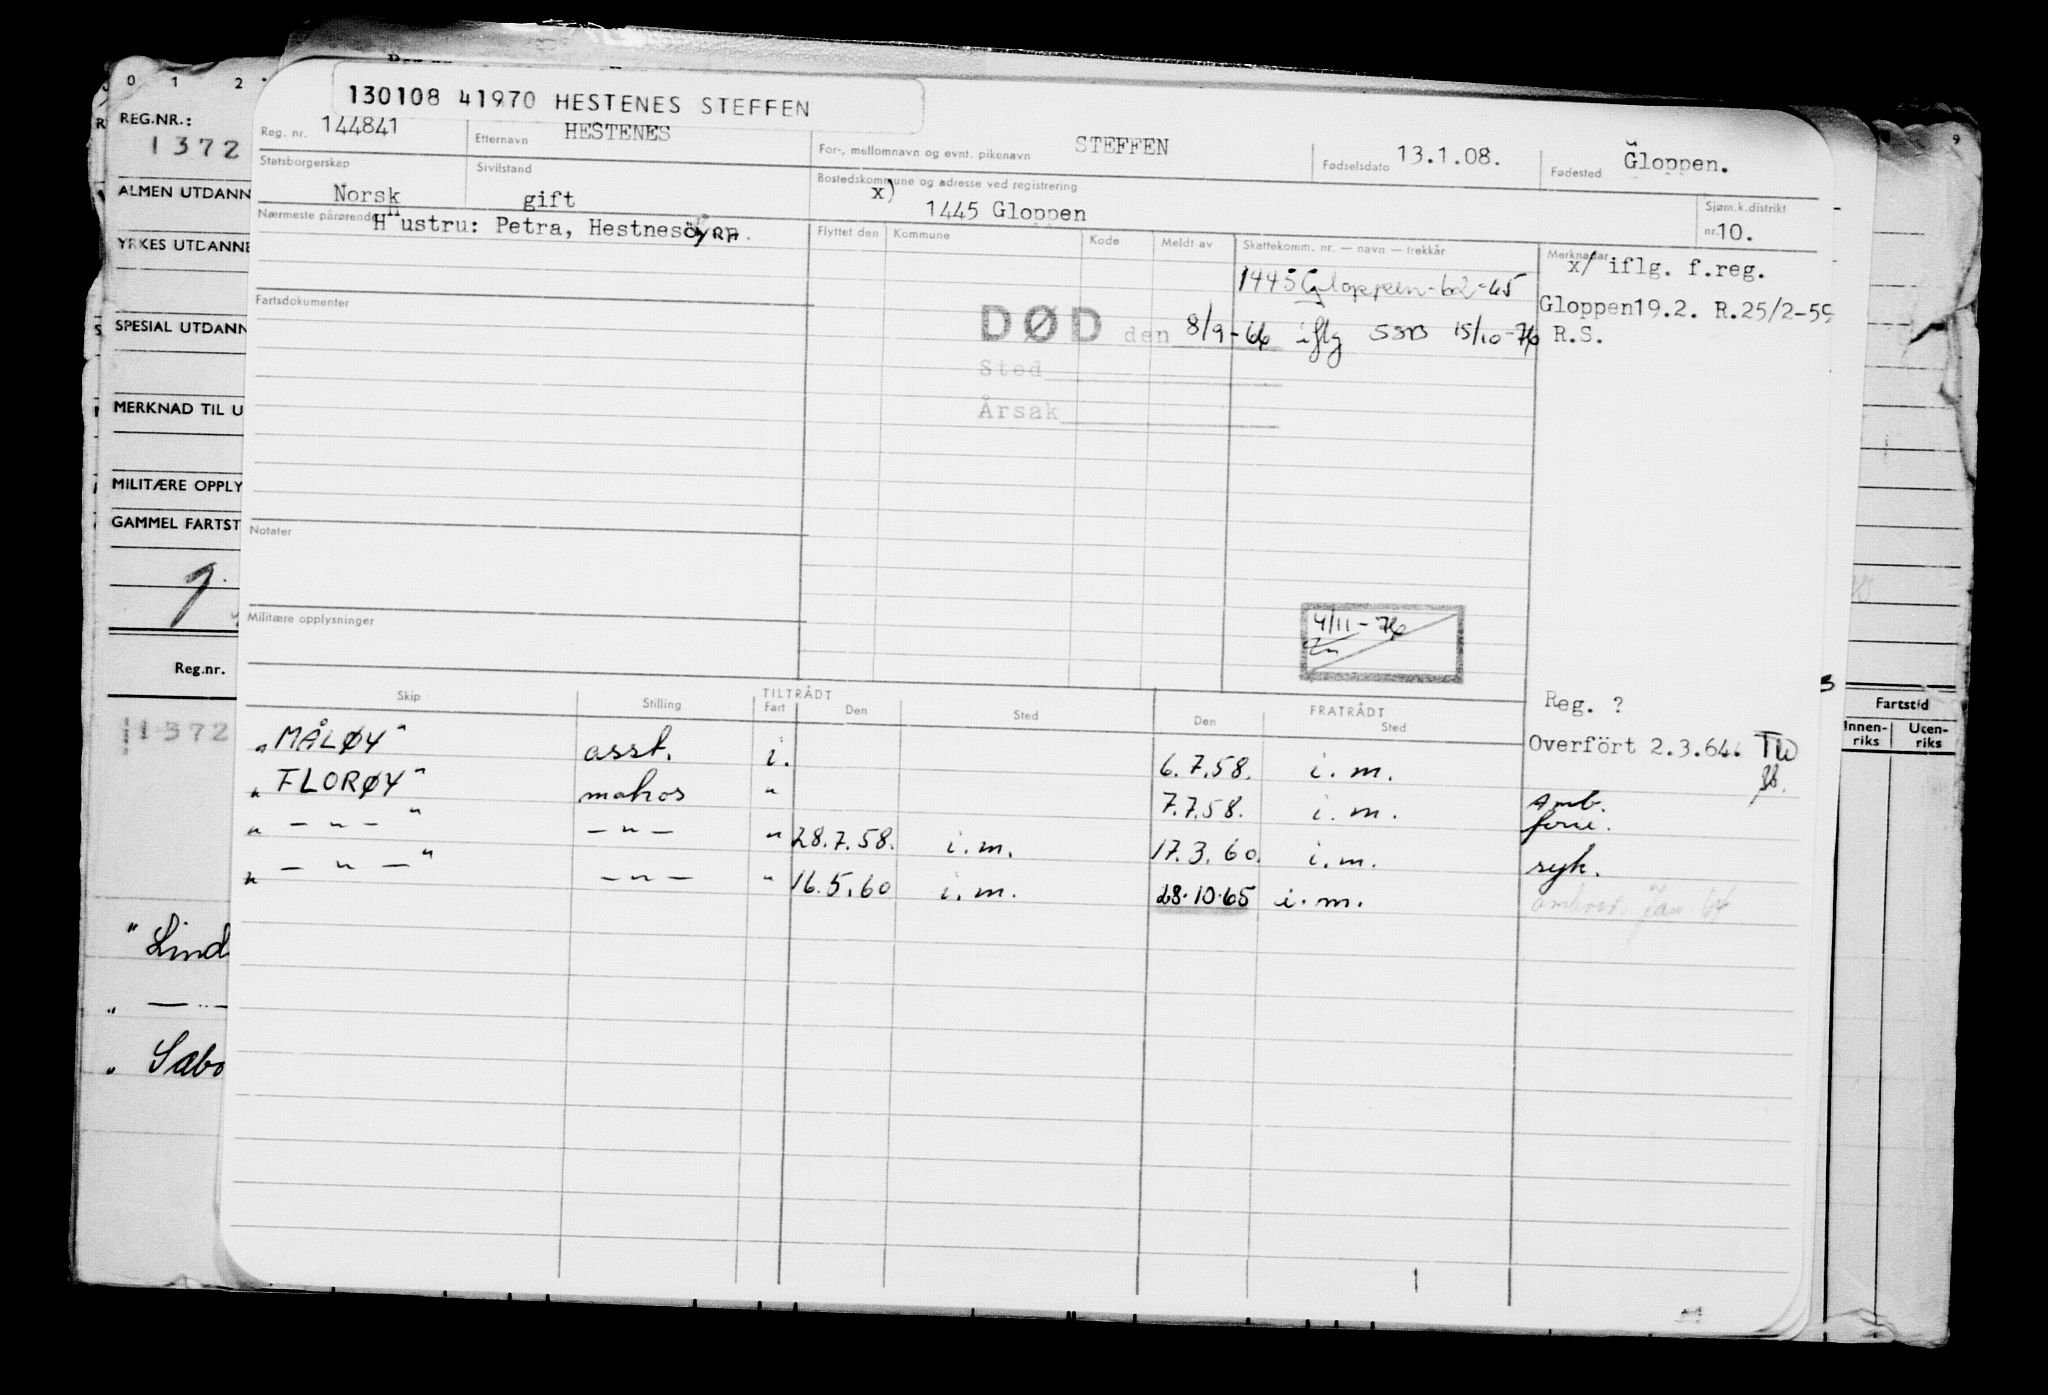 0 1 2
9
REG.NR.:
1372
ALMEN UTDANN
YRKES UTDANNE
SPESIAL UTDANN
MERKNAD TIL U
MILITÆRE OPPLY
GAMMEL FARTST
Reg.nr.
11372
" Lind
" — " —
" Sæbo
130108 41970 HESTENES STEFFEN
Reg. nr. 144841
Etternavn HESTENES
For-, mellomnavn og evnt. pikenavn STEFFEN
Fødselsdato 13.1.08.
Fødested Gloppen.
Statsborgerskap Norsk
Sivilstand gift
Bostedskommune og adresse ved registrering
x) 1445 Gloppen
Sjøm.k.distrikt
nr. 10.
Nærmeste pårørende
Hustru: Petra, Hestnesöyra.
Flyttet den Kommune Kode Meldt av Skattekomm. nr. — navn — trekkår Merknader
x/ iflg. f.reg.
1445 Gloppen-62-65
Gloppen19.2. R.25/2-59
Fartsdokumenter
DØD den 8/9-66 iflg SSB 15/10-76 R.S.
Sted
Årsak
Notater
Militære opplysninger
4/11-76
Skip Stilling TILTRÅDT Fart Den Sted FRATRÅDT Den Sted
Reg. ?
Overfört 2.3.64.
"MÅLØY" asst. i. 6.7.58. i.m.
"FLORØY" " 7.7.58. i.m. Amb. ferie.
" — " — " — " — " 28.7.58. i.m. 17.3.60. i.m. syk.
" — " — " — " — " 16.5.60 i.m. 28.10.65 i.m. Jan. 64
Fartstid
Innen-riks Uten-riks
3
1